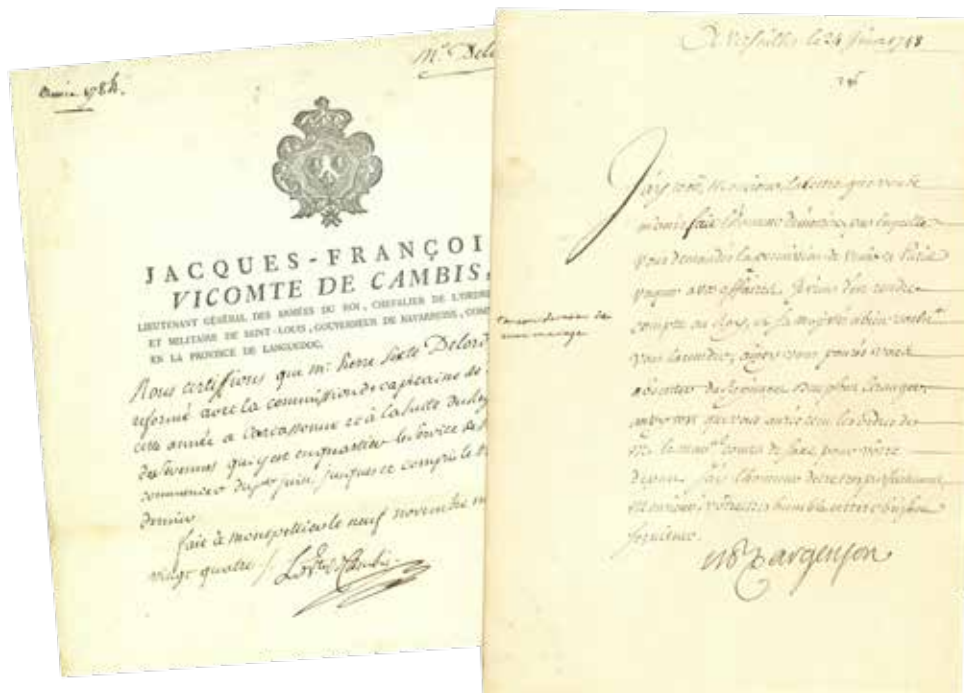 Année 1784.
Mr. Delor
JACQUES-FRANÇOI
VICOMTE DE CAMBIS,
LIEUTENANT GÉNÉRAL DES ARMÉES DU ROI, CHEVALIER DE L'ORDRE
ET MILITAIRE DE SAINT-LOUIS, GOUVERNEUR DE NAVARREINS, COM
EN LA PROVINCE DE LANGUEDOC.
Nous certiffions que Mr. Pierre Sixte Delor
réformé avec la commission de capitaine de
cette année a Carcassonne et à la suite du Reg
des Cevennes qui y est en quartier le service de
commencer du 1er juin, jusques et compris le
dernier
fait à Monspellier le neuf novembre m
vingt quatre
Le Vte de Cambis
A Versailles le 24 1748
J'ay reçu, Monsieur, la lettre que vous
m'avés fait l'honneur de m'écrire, par laquelle
vous demandés la permission de venir a Paris
vaquer a vos affaires. Je viens d'en rendre
compte au Roy, et sa Majesté a bien voulu
vous l'accorder,
absenter
que vous aurés les ordres de
M. le Maal. Comte de Saxe pour vôtre
J'ai l'honneur d'être très parfaitement,
Monsieur, vôtre très humble et très obéissant
serviteur.
M d'argenson